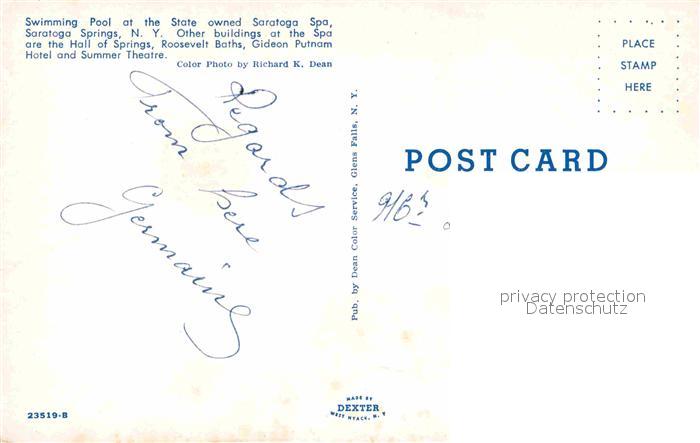 Swimming Pool at the State owned Saratoga Spa,
Saratoga Springs, N. Y. Other buildings at the Spa
are the Hall of Springs, Roosevelt Baths, Gideon Putnam
Hotel and Summer Theatre.
Color Photo by Richard K. Dean
Regards
from here
Germaine
Pub. by Dean Color Service, Glens Falls, N. Y.
PLACE
STAMP
HERE
POST CARD
privacy protection
Datenschutz
23519-B
MADE BY
DEXTER
WEST NYACK, N. Y.